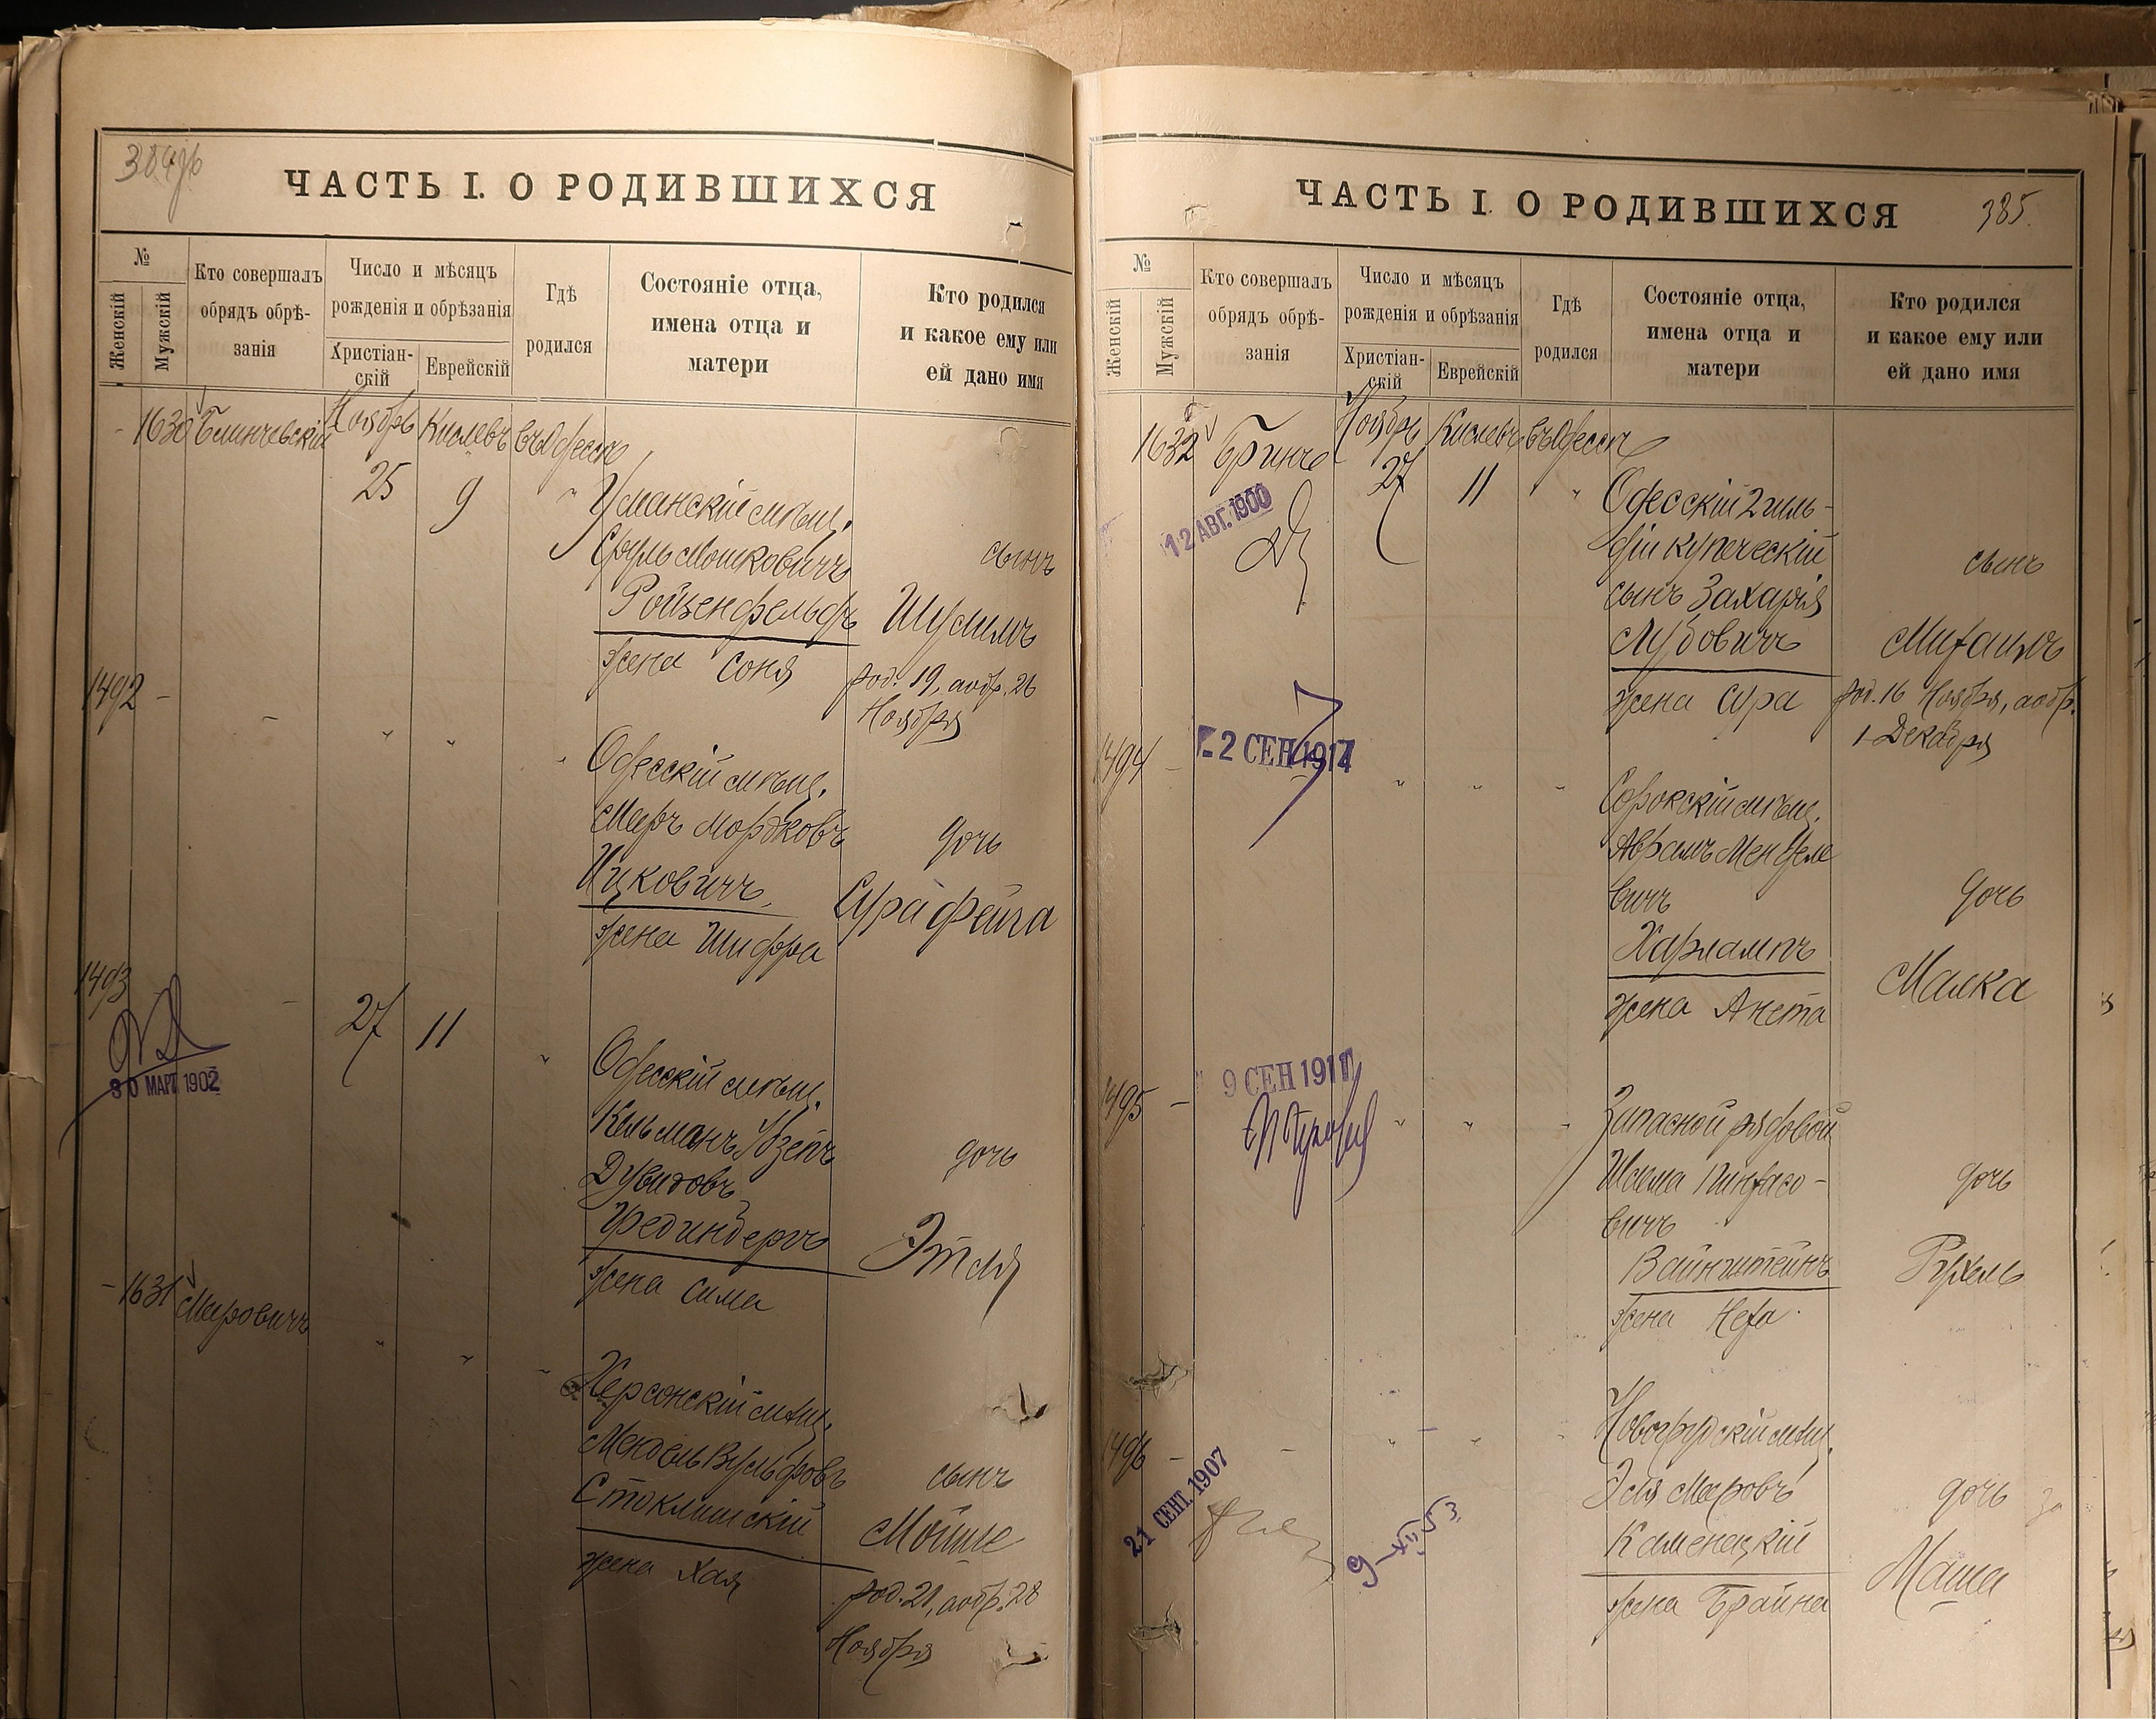 ЧАСТЬ I. О РОДИВШИХСЯ
№
Женскій
Мужскій
Кто совершалъ
обрядъ обрѣ-
занія
Число и мѣсяцъ
рожденія и обрѣзанія
Христіан-
скій
Еврейскій
Гдѣ
родился
Состояніе отца,
имена отца и
матери
Кто родился
и какое ему или
ей дано имя
1630 Блинчевскій Ноябрь Кислевъ въ Одессѣ
25 9 "
Уманскій мѣщ.
Сруль Мошковичъ
Ройзенфельдъ
жена Соня
сынъ
Шулимъ
род. 19, а обр. 26
Ноября
1492 - - " " "
Одесскій мѣщ.
Меръ Мордковъ
Ицковичъ
жена Шифра
дочь
Сура Фейга
1493 - 27 11 "
30 МАРТ 1902
Одесскій мѣщ.
Кельманъ Узепъ
Дувидовъ
Гредингеръ
жена Сима
дочь
Этля
- 1631 Меровичъ " " "
Херсонскій мѣщ.
Мендель Вульфовъ
Стоклишскій
жена Хая
сынъ
Мойше
род. 21, а обр. 28
Ноября
ЧАСТЬ I. О РОДИВШИХСЯ
385.
№
Женскій
Мужскій
Кто совершалъ
обрядъ обрѣ-
занія
Число и мѣсяцъ
рожденія и обрѣзанія
Христіан-
скій
Еврейскій
Гдѣ
родился
Состояніе отца,
имена отца и
матери
Кто родился
и какое ему или
ей дано имя
1632 Бринъ Ноябрь Кислевъ въ Одессѣ
27 11 "
12 АВГ. 1900
Одесскій 2 гиль-
діи купеческій
сынъ Захарія
Лубовичъ
жена Сура
сынъ
Михаилъ
род. 16 Ноября, а обр.
1 Декабря
1494 - " " "
2 СЕН 1917
Сорокскій мѣщ.
Аврамъ Менделе
вичъ
Харлампъ
жена Анета
дочь
Малка
1495 - " " "
9 СЕН 1911
Запасной рядовой
Шлема Пинхасо-
вичъ
Вайнштейнъ
жена Неха
дочь
Рухель
1496 - - " " "
21 СЕНТ. 1907
9-XII 53
Новогрудскій мѣщ.
Эля Меровъ
Каменецкій
жена Брайна
дочь
Маша